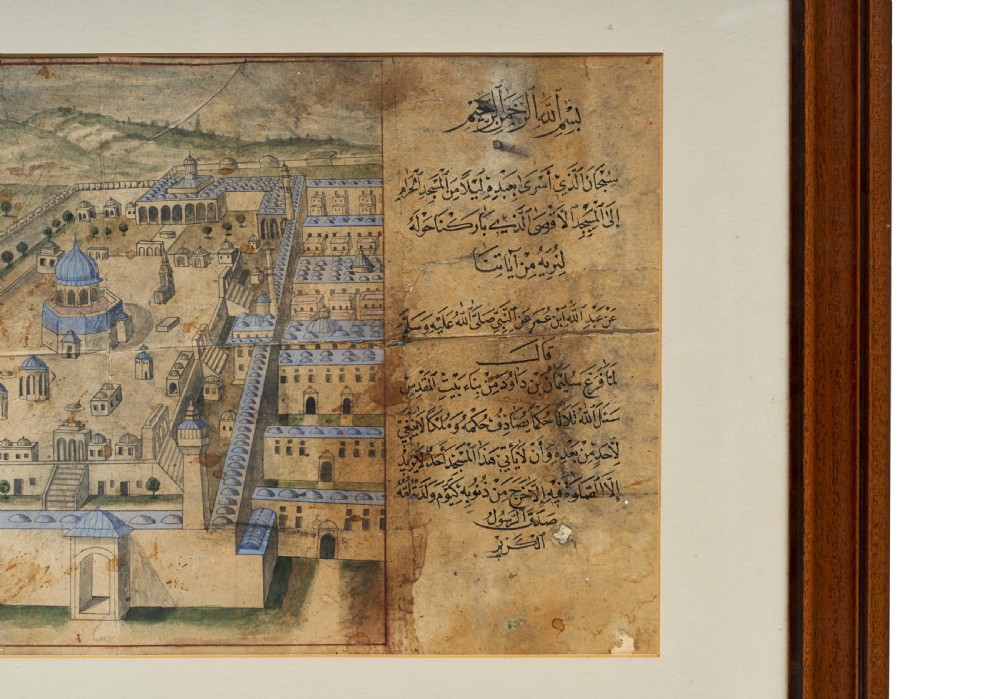 بِسْمِ ٱللَّهِ ٱلرَّحْمَٰنِ ٱلرَّحِيمِ
سُبْحَانَ ٱلَّذِي أَسْرَىٰ بِعَبْدِهِ لَيْلًا مِنَ ٱلْمَسْجِدِ ٱلْحَرَامِ
إِلَى ٱلْمَسْجِدِ ٱلْأَقْصَى ٱلَّذِي بَارَكْنَا حَوْلَهُ
لِنُرِيَهُ مِنْ آيَاتِنَا
عَنْ عَبْدِ ٱللَّهِ ٱبْنِ عُمَرَ عَنِ ٱلنَّبِيِّ صَلَّى ٱللَّهُ عَلَيْهِ وَسَلَّمَ
قَالَ
لَمَّا فَرَغَ سُلَيْمَانُ بْنُ دَاوُدَ مِنْ بِنَاءِ بَيْتِ ٱلْمَقْدِسِ
سَئَلَ ٱللَّهَ ثَلَاثًا حُكْمًا يُصَادِفُ حُكْمَهُ وَمُلْكًا لَا يَنْبَغِي
لِأَحَدٍ مِنْ بَعْدِهِ وَأَنْ لَا يَأْتِيَ هَذَا ٱلْمَسْجِدَ أَحَدٌ لَا يُرِيدُ
إِلَّا ٱلصَّلَوٰةَ فِيهِ إِلَّا خَرَجَ مِنْ ذُنُوبِهِ كَيَوْمِ وَلَدَتْهُ أُمُّهُ
صَدَقَ ٱلرَّسُولُ
ٱلْكَرِيمُ